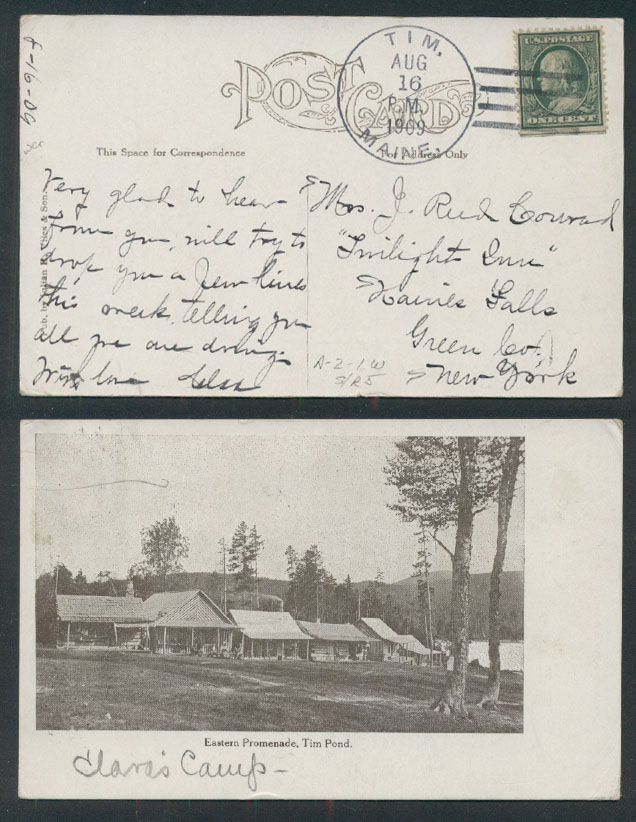 8-16-09
POST CARD
TIM,
AUG
16
P.M.
1909
MAINE.
U.S. POSTAGE
ONE CENT
This Space for Correspondence
For Address Only
Very glad to hear
from you, will try to
drop you a few lines
this week, telling you
all we are doing.
With love
Mrs. J. Reid Conrad
"Twilight Inn"
Haines Falls
Green Co.
New York
A-2-1W
Pub. by Julian & Son.
Eastern Promenade, Tim Pond.
Clara's Camp-